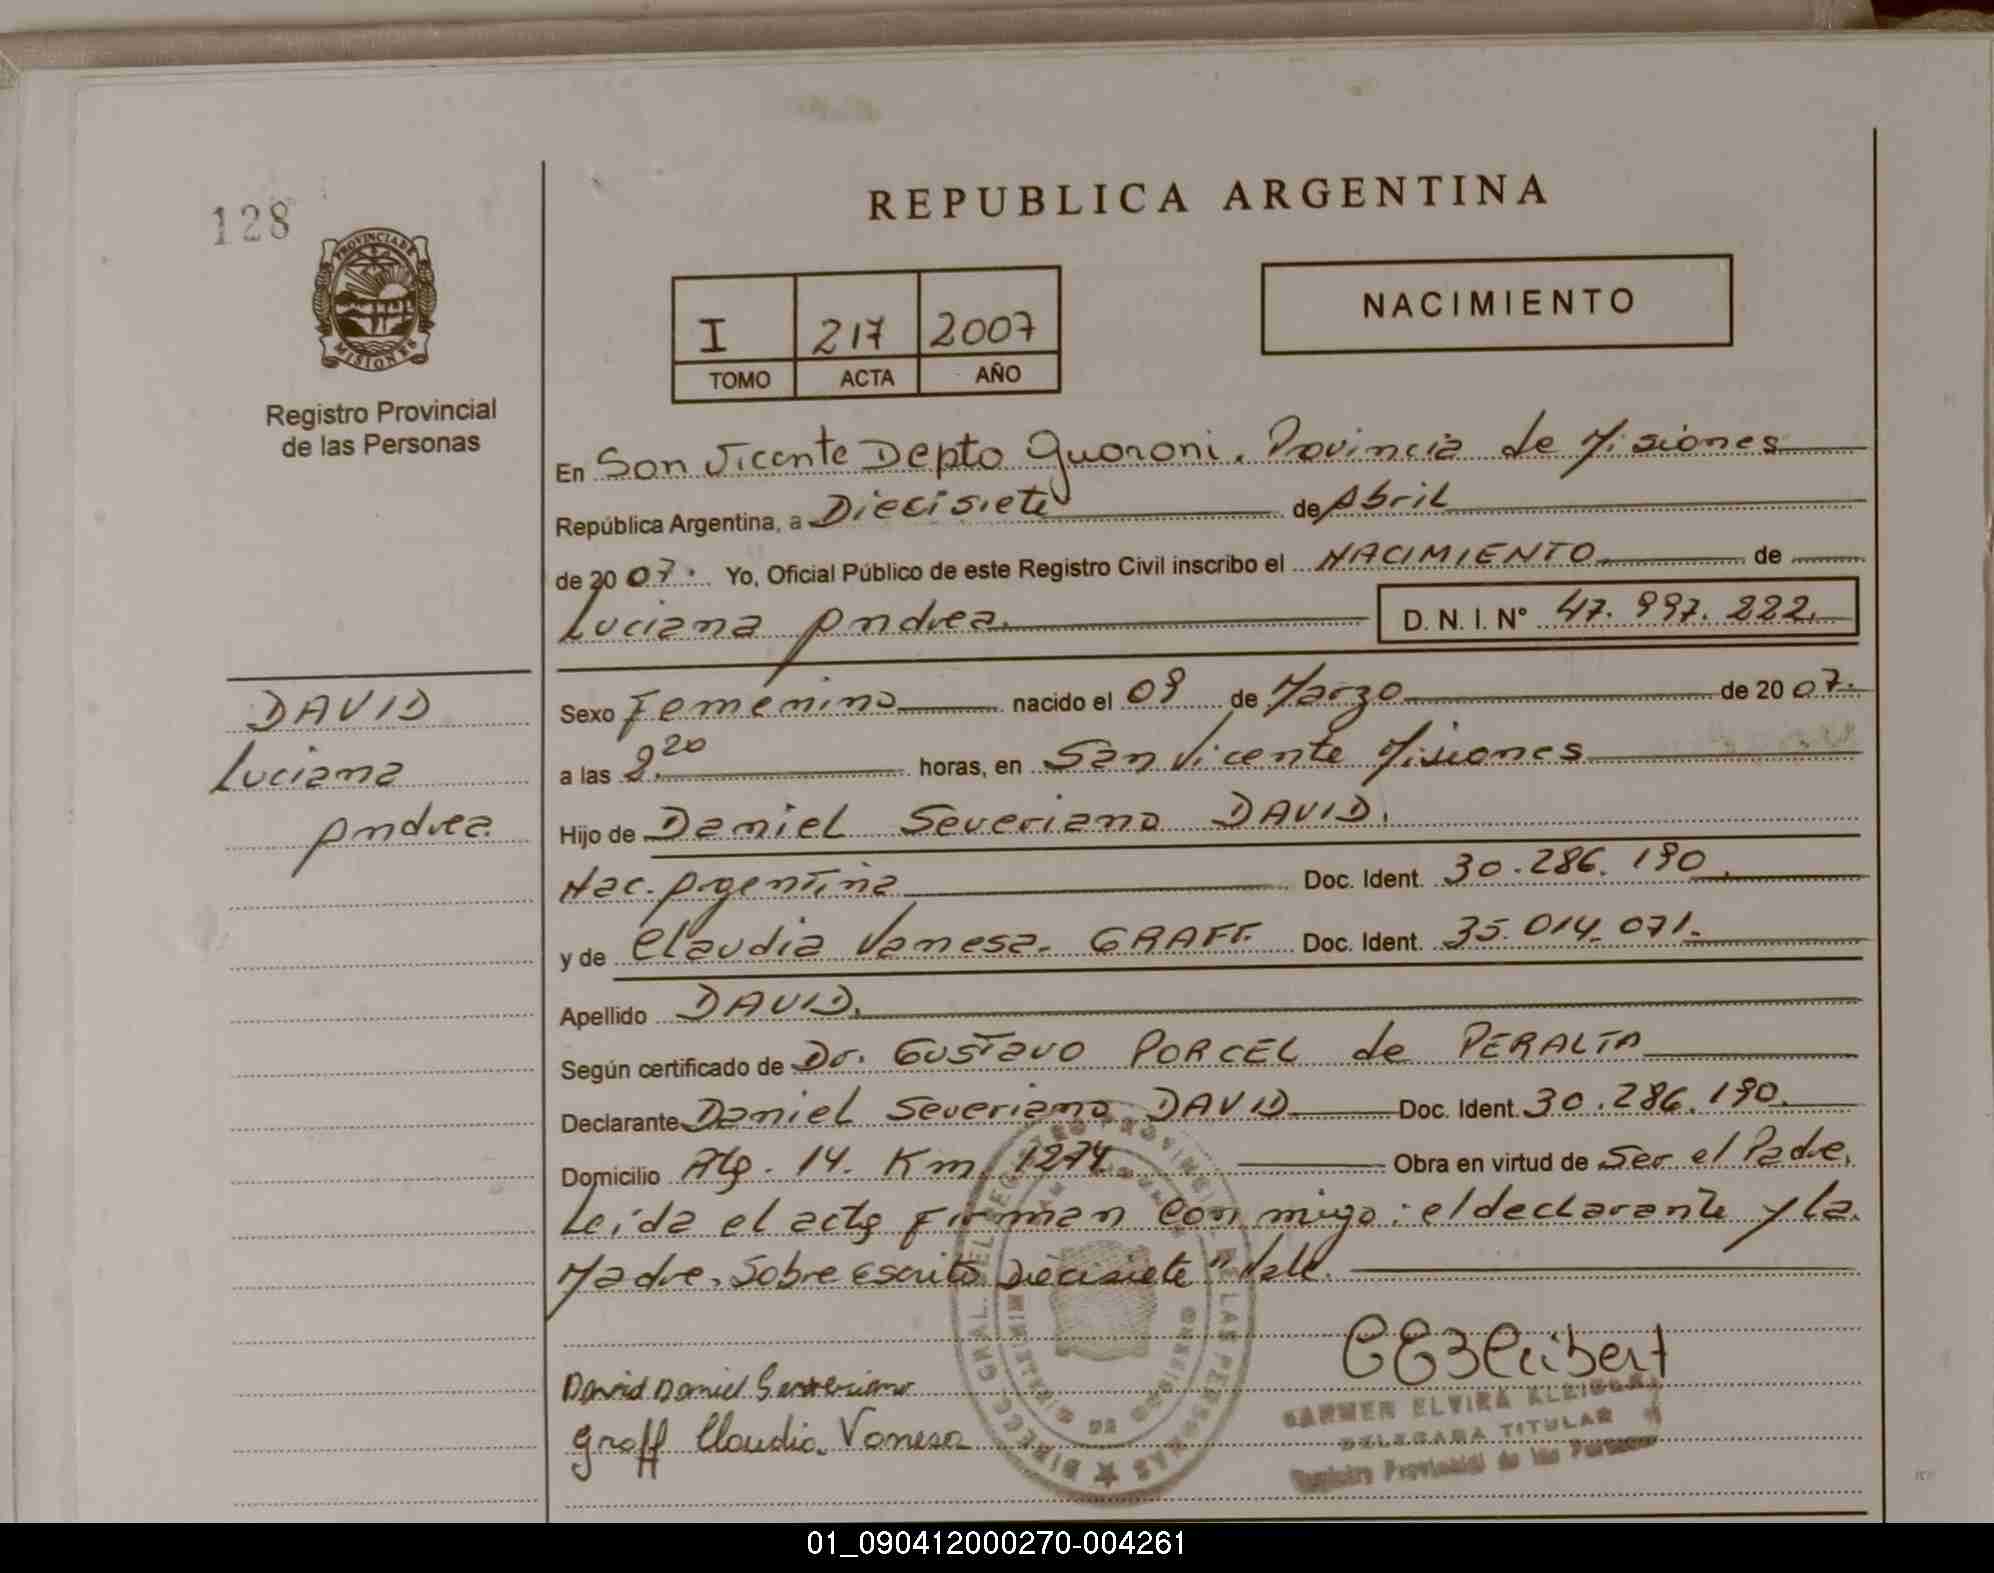 128
PROVINCIA DE
MISIONES
Registro Provincial
de las Personas
REPUBLICA ARGENTINA
I 217 2007
TOMO ACTA AÑO
NACIMIENTO
En San Vicente Depto Guarani. Provincia de Misiones
República Argentina, a Diecisiete de Abril
de 20 07. Yo, Oficial Público de este Registro Civil inscribo el NACIMIENTO de
Luciana Andrea. D. N. I. N° 47.997.222.
DAVID
Luciana
Andrea
Sexo Femenino nacido el 09 de Marzo de 20 07.
a las 9.20 horas, en San Vicente Misiones
Hijo de Daniel Severiano DAVID.
Nac. Argentina Doc. Ident. 30.286.190.
y de Claudia Vanesa. GRAFF. Doc. Ident. 35.014.071.
Apellido DAVID.
Según certificado de Dr. Gustavo PORCEL de PERALTA
Declarante Daniel Severiano DAVID Doc. Ident. 30.286.190.
Domicilio Rta. 14. Km. 1274 Obra en virtud de Ser el Padre,
Leída el acta Firman Conmigo: el declarante y la
Madre. Sobre escrito Diecisiete" Vale.
David Daniel Severiano
Graff Claudia Vanesa
CEKleibert
CARMEN ELVIRA
DELEGADA TITULAR
Registro Provincial de las Personas
01_090412000270-004261